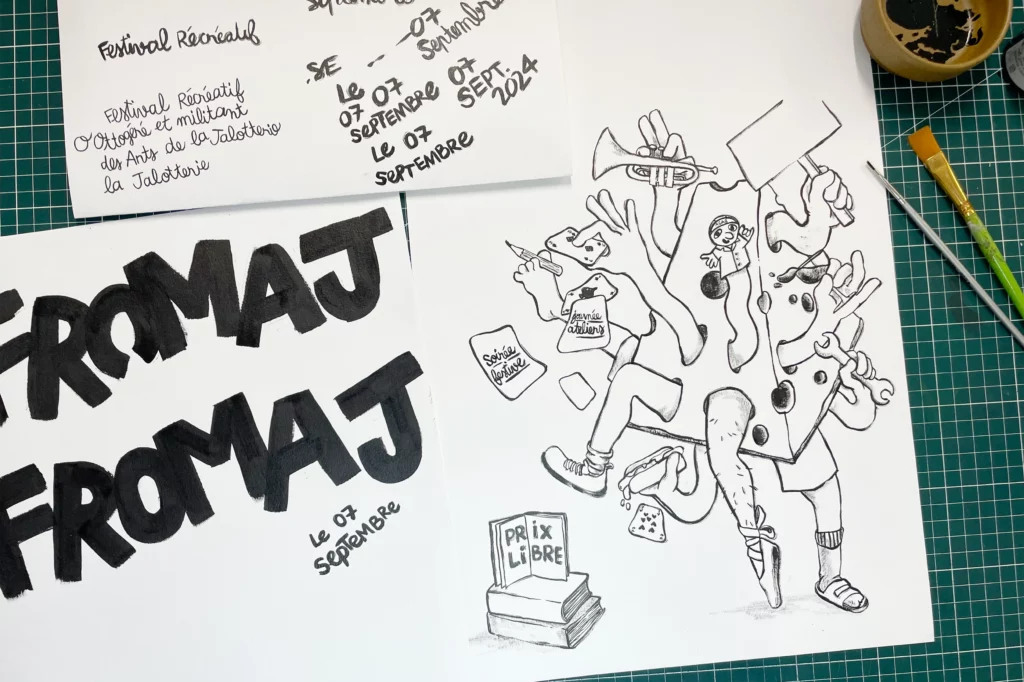 Festival Récréatif
Festival Récréatif
O'Ottogéré et militant
des Arts de la Jalotterie
la Jalotterie
07
Septembre
SE
Le
07 07
SEPTEMBRE
07
SEPT.
2024
Le 07
SEPTEMBRE
FROMAJ
FROMAJ
Le 07
SEPTEMBRE
Journée
ateliers
Soirée
festive
PRIX
LiBRE